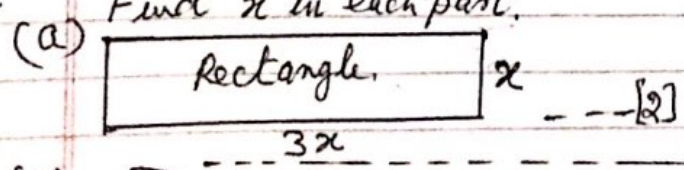 Find x in each part.
(a) Rectangle. x
---[2]
3x